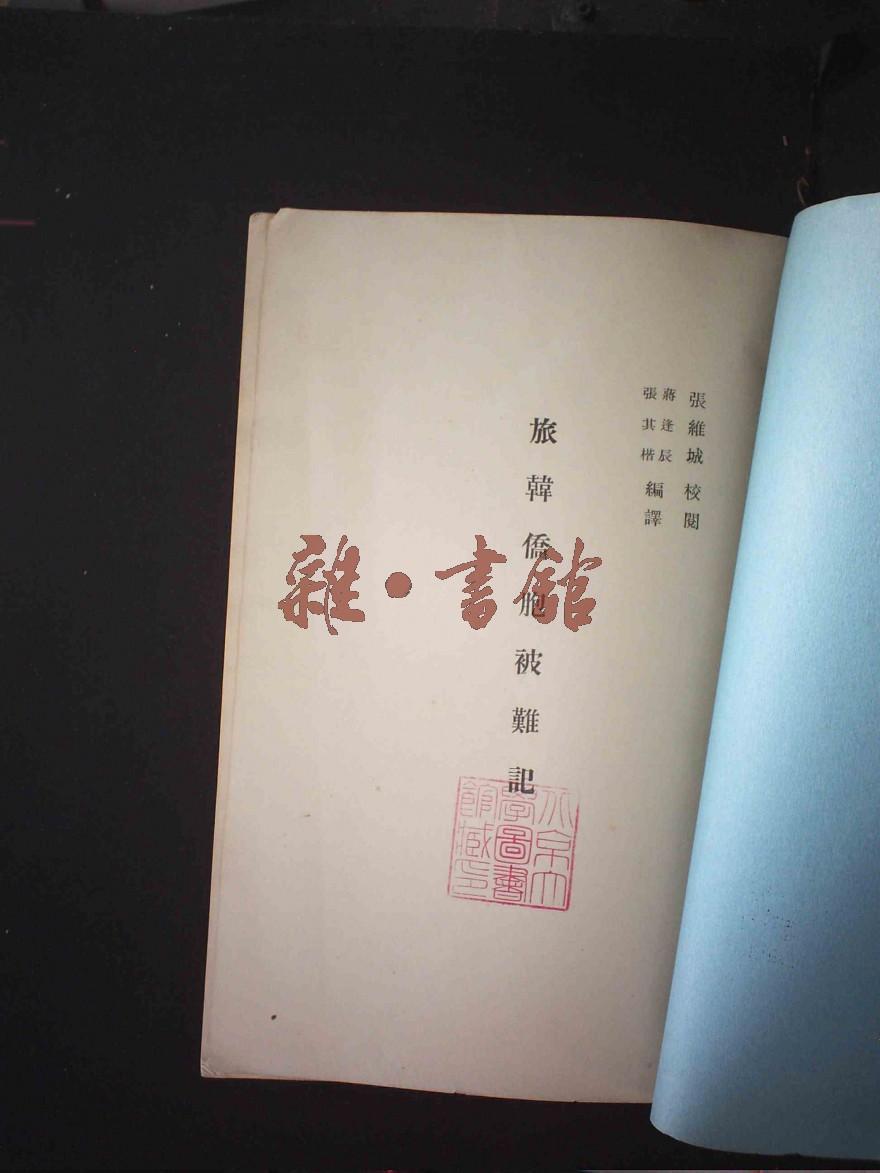 張維城校閱
蔣逢辰
張其楷
編譯
旅韓僑胞被難記
雜·書館
北京大
學圖書
館藏印